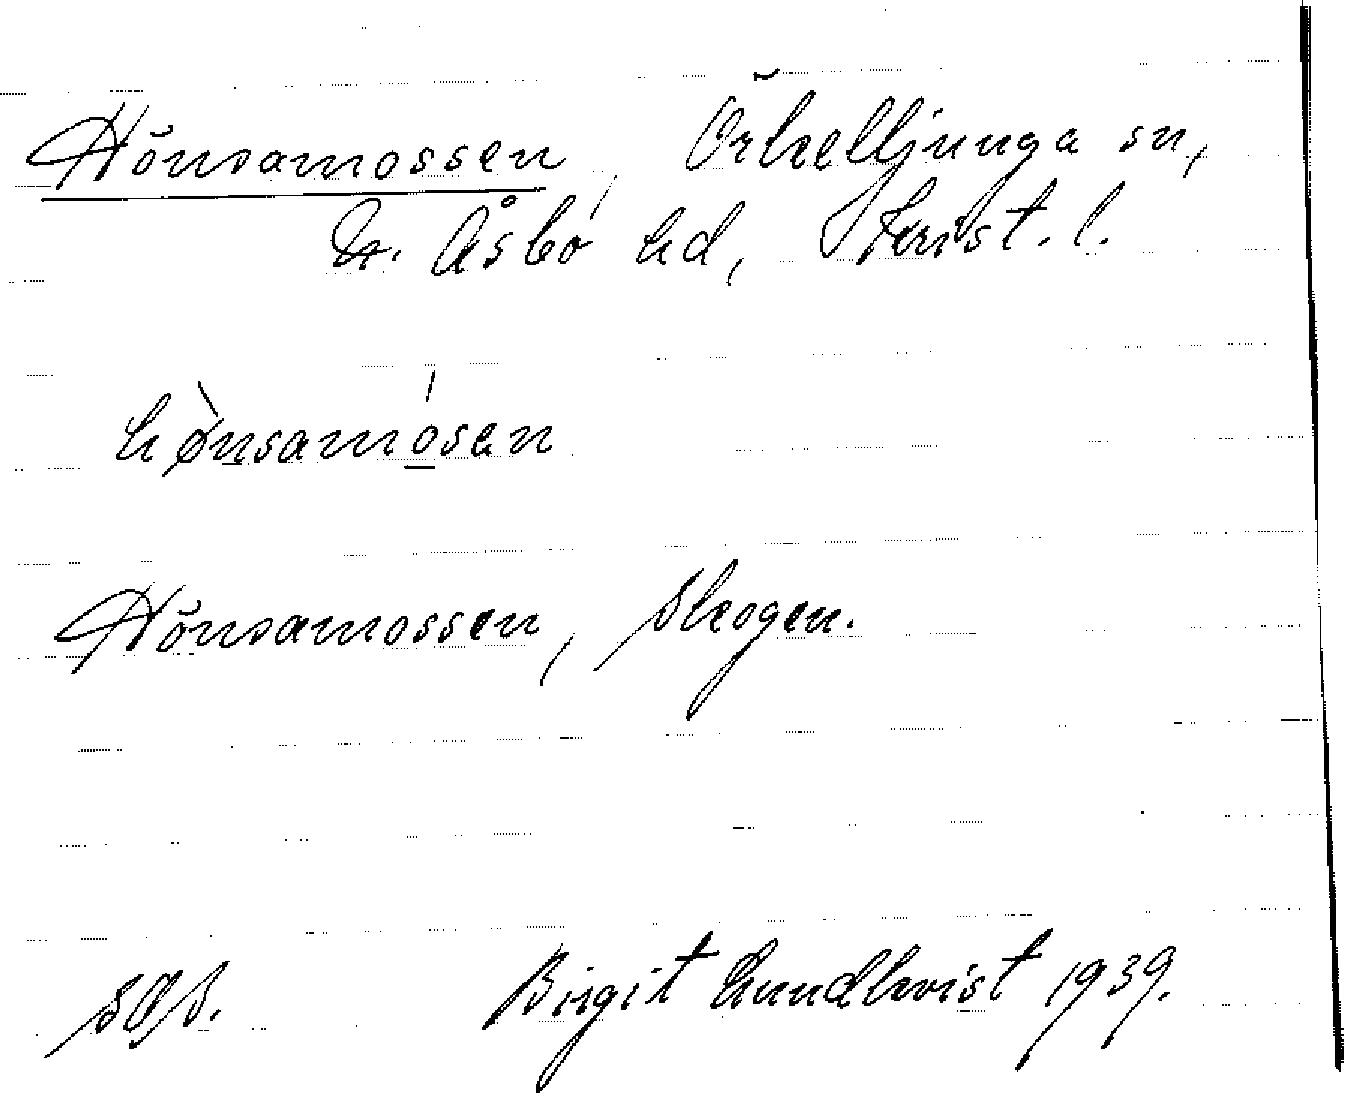 Hönsamossen, Örkelljunga sn,
N. Åsbo hd, Krist. l.
hø̀nsamósen
Hönsamossen, skogen.
Birgit Lundkvist 1939.